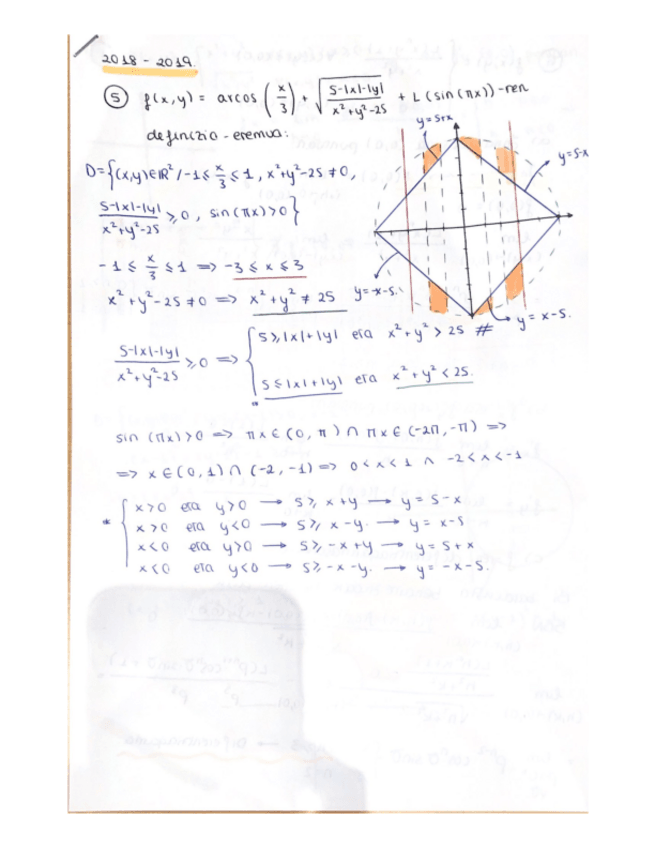 2018 - 2019.
⑤ f(x,y) = arcos (x/3) · √((5-|x|-|y|)/(x²+y²-25)) + L (sin (πx)) -ren
definizio - eremua:
y=5+x
y=5-x
D={(x,y)∈ℝ² / -1 ≤ x/3 ≤ 1, x²+y²-25 ≠ 0,
(5-|x|-|y|)/(x²+y²-25) ≥ 0, sin(πx)>0}
-1 ≤ x/3 ≤ 1 => -3 ≤ x ≤ 3
x²+y²-25 ≠ 0 => x²+y² ≠ 25
y=-x-5.
y = x-5.
(5-|x|-|y|)/(x²+y²-25) ≥ 0 => { 5 ≥ |x|+|y| eta x²+y² > 25 #
5 ≤ |x|+|y| eta x²+y² < 25.
*
sin (πx)>0 => πx ∈ (0, π) ∩ πx ∈ (-2π, -π) =>
=> x ∈ (0, 1) ∩ (-2, -1) => 0 < x < 1 ∧ -2 < x < -1
* { x>0 eta y>0 → 5 ≥ x+y → y = 5-x
x>0 eta y<0 → 5 ≥ x-y. → y = x-5
x<0 eta y>0 → 5 ≥ -x+y → y = 5+x
x<0 eta y<0 → 5 ≥ -x-y. → y = -x-5.